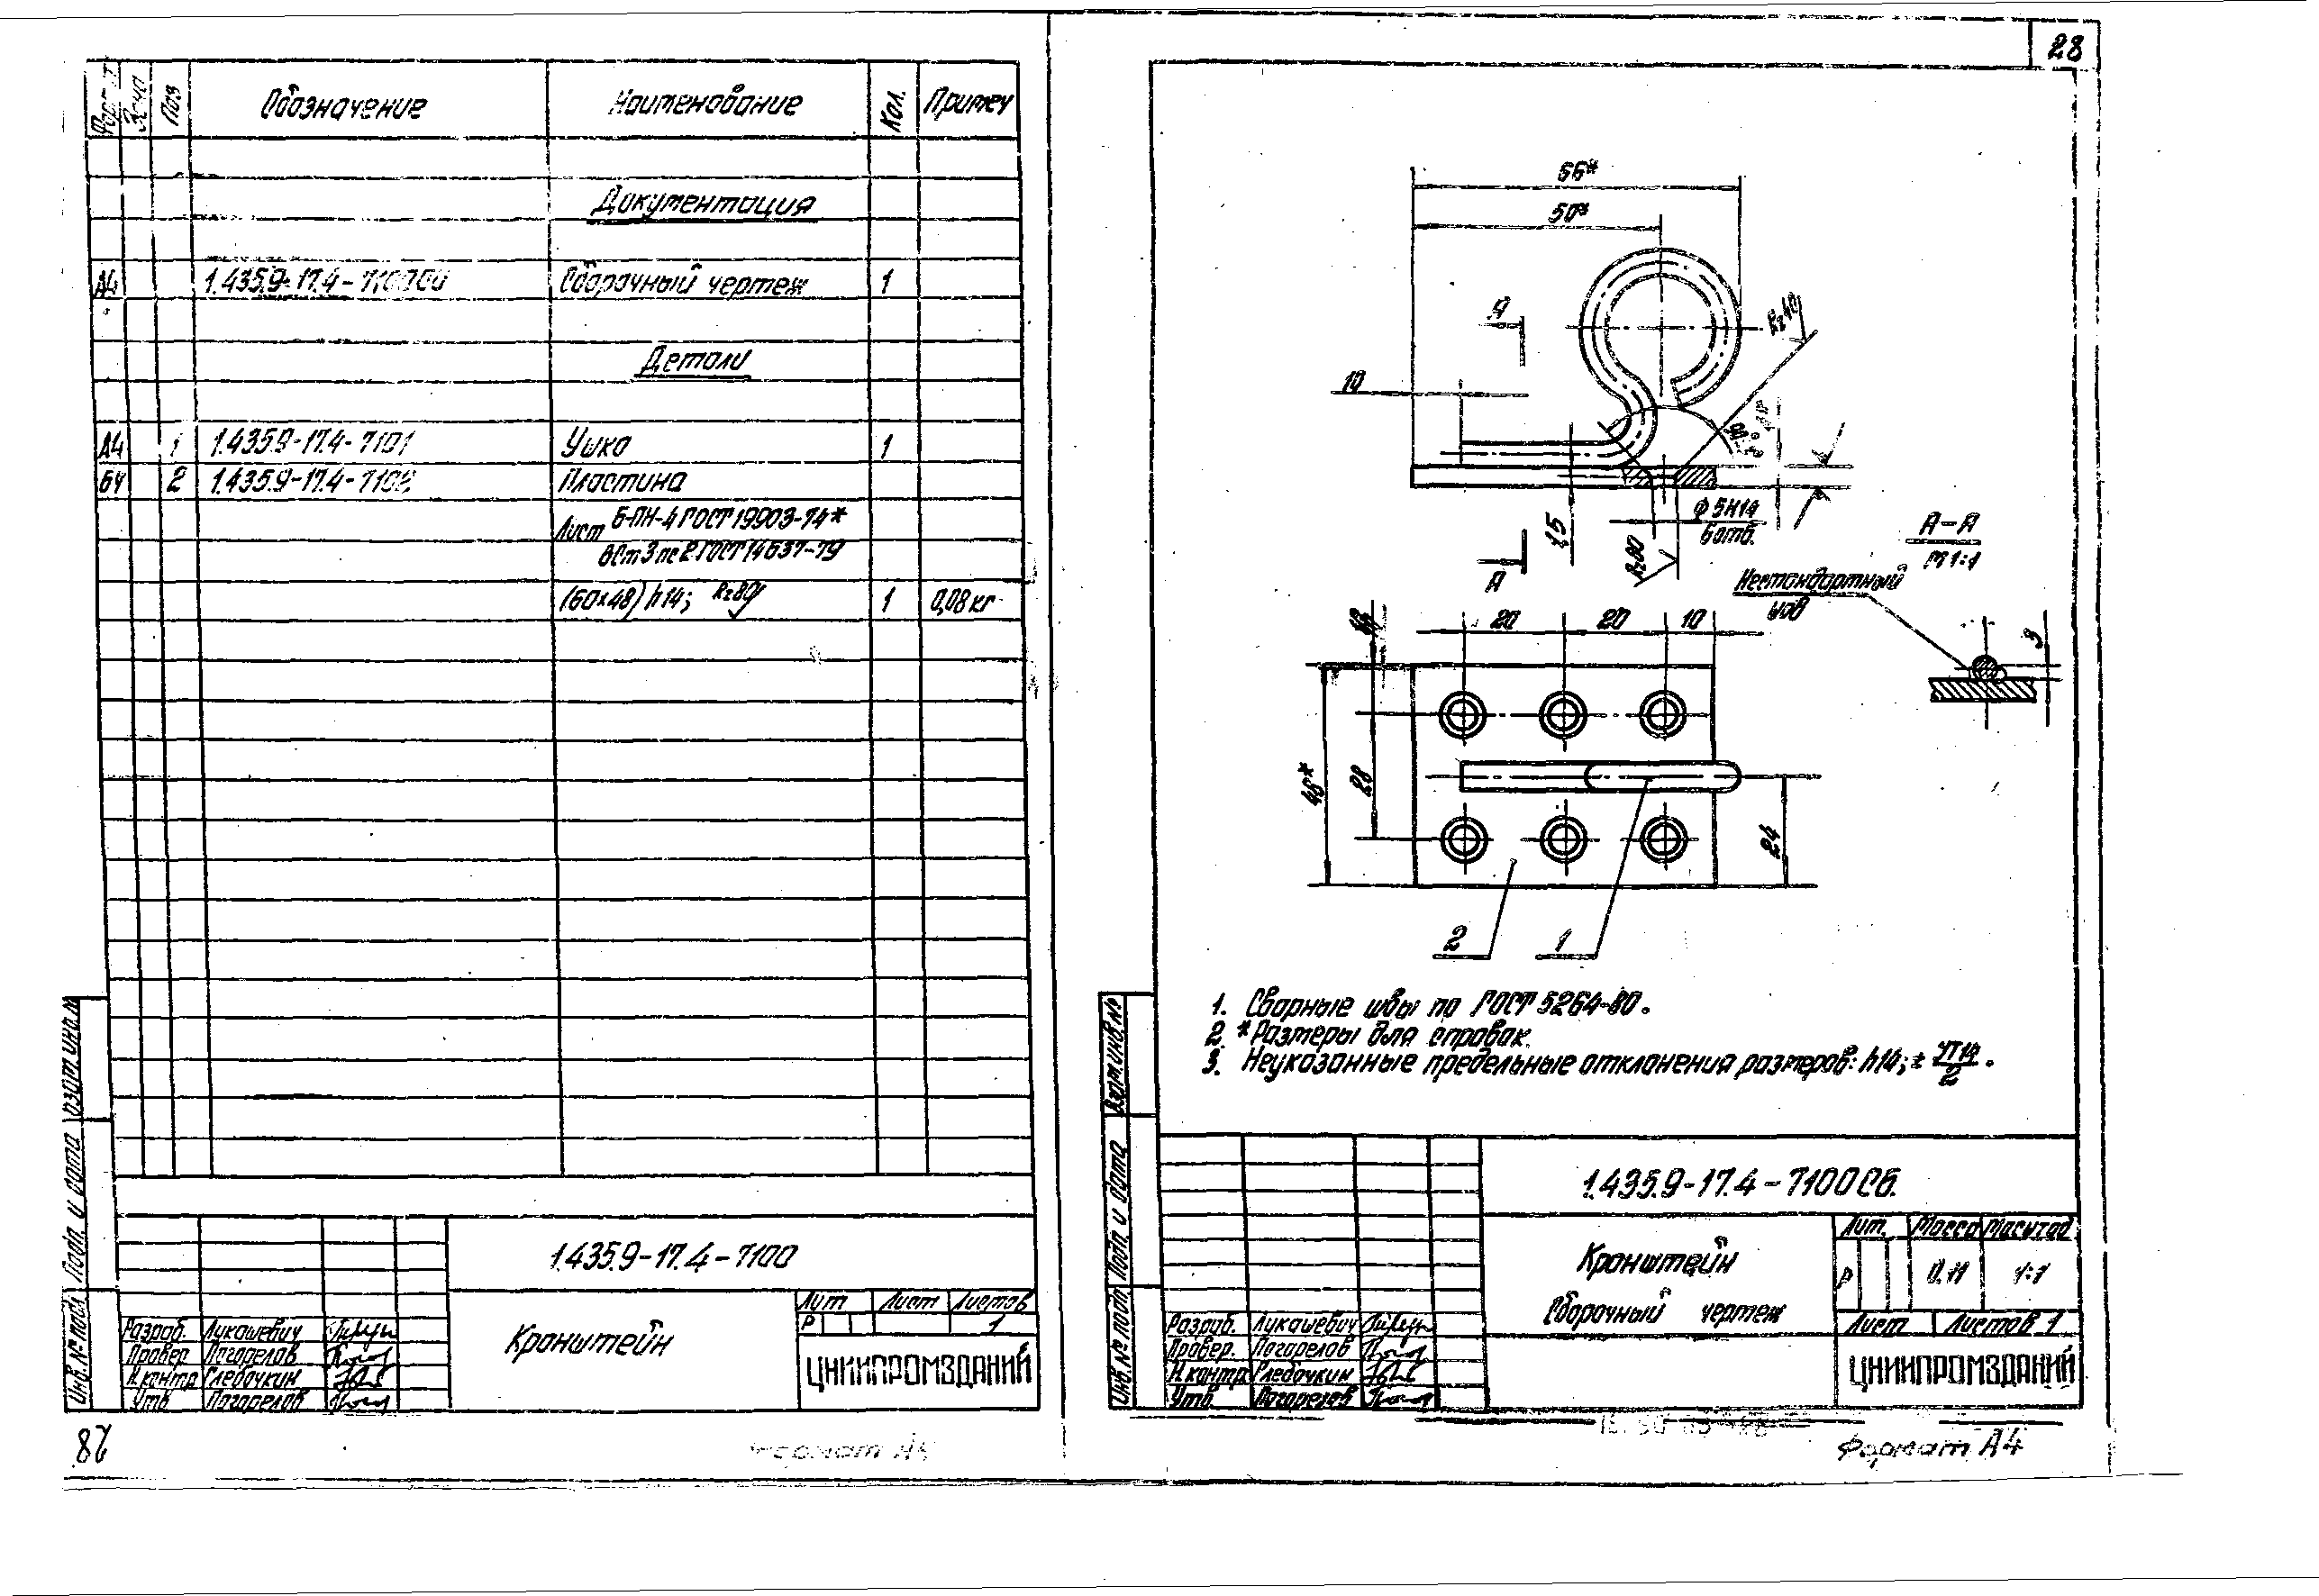 28
Обозначение Наименование Кол. Примеч
Поз
Документация
А4 1.435.9-17.4- Сборочный чертеж 1
Детали
А4 1 1.435.9-17.4-7101 Ушко 1
БЧ 2 1.435.9-17.4-7102 Пластина
Лист Б-ПН-4 ГОСТ 19903-74*
ВСт3пс2 ГОСТ 14637-79
(60×48) h14; Rz80 1 0,08 кг
1.435.9-17.4-7100
Кронштейн
Лит Лист Листов
Р 1
ЦНИИПРОМЗДАНИЙ
Разраб. Лукашевич
Провер Погорелов
Н.контр Гледочкин
Утв. Погорелов
Подп. и дата
Инв.№ подл
87
66*
50*
А
Rz40
10
90°
1,5
Rz80
φ5H14
6 отв.
А
А-А
М 1:1
Нестандартный
шов
3
20 20 10
48*
28
24
2 1
1. Сварные швы по ГОСТ 5264-80.
2. *Размеры для справок.
3. Неуказанные предельные отклонения размеров: h14; ± УТ14/2.
1.435.9-17.4-7100СБ.
Кронштейн
Сборочный чертеж
Лит. Масса Масштаб
Р 0.11 1:1
Лист Листов 1
ЦНИИПРОМЗДАНИЙ
Разраб. Лукашевич
Провер. Погорелов
Н.контр Гледочкин
Утв. Погорелов
Взам.инв.№
Подп. и дата
Инв.№ подл
Формат А4
Формат А4